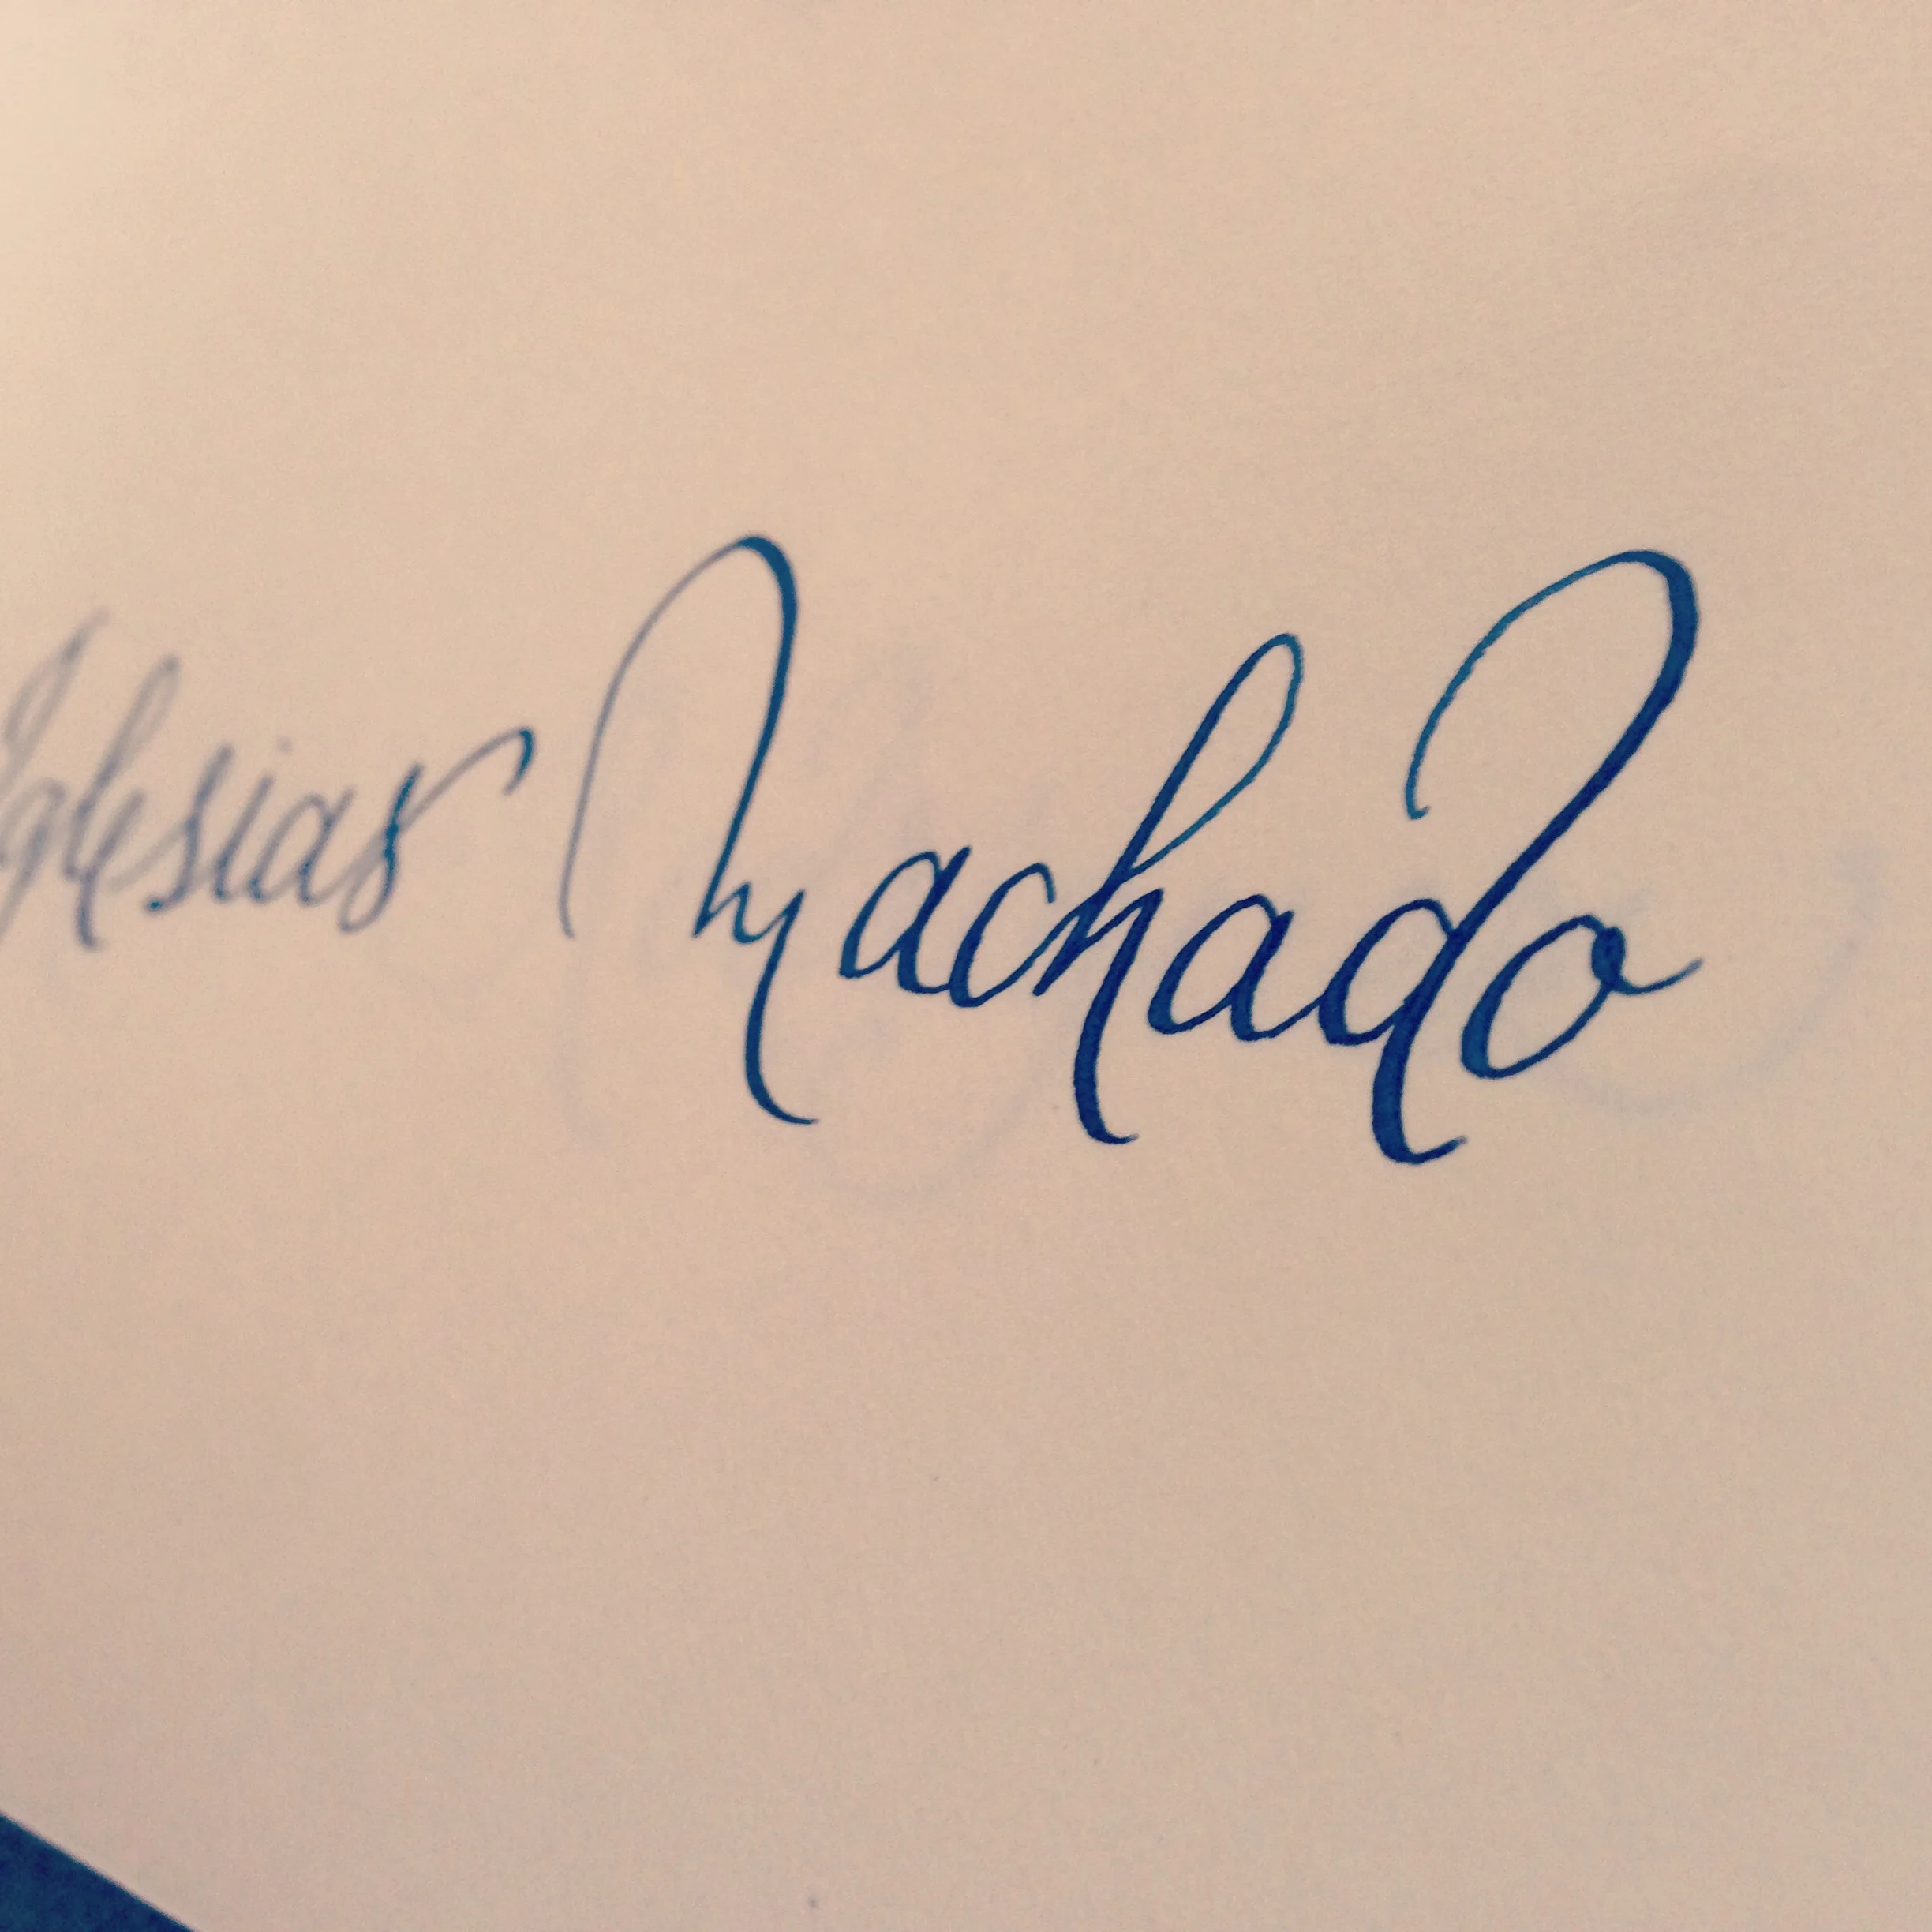 Iglesias Machado